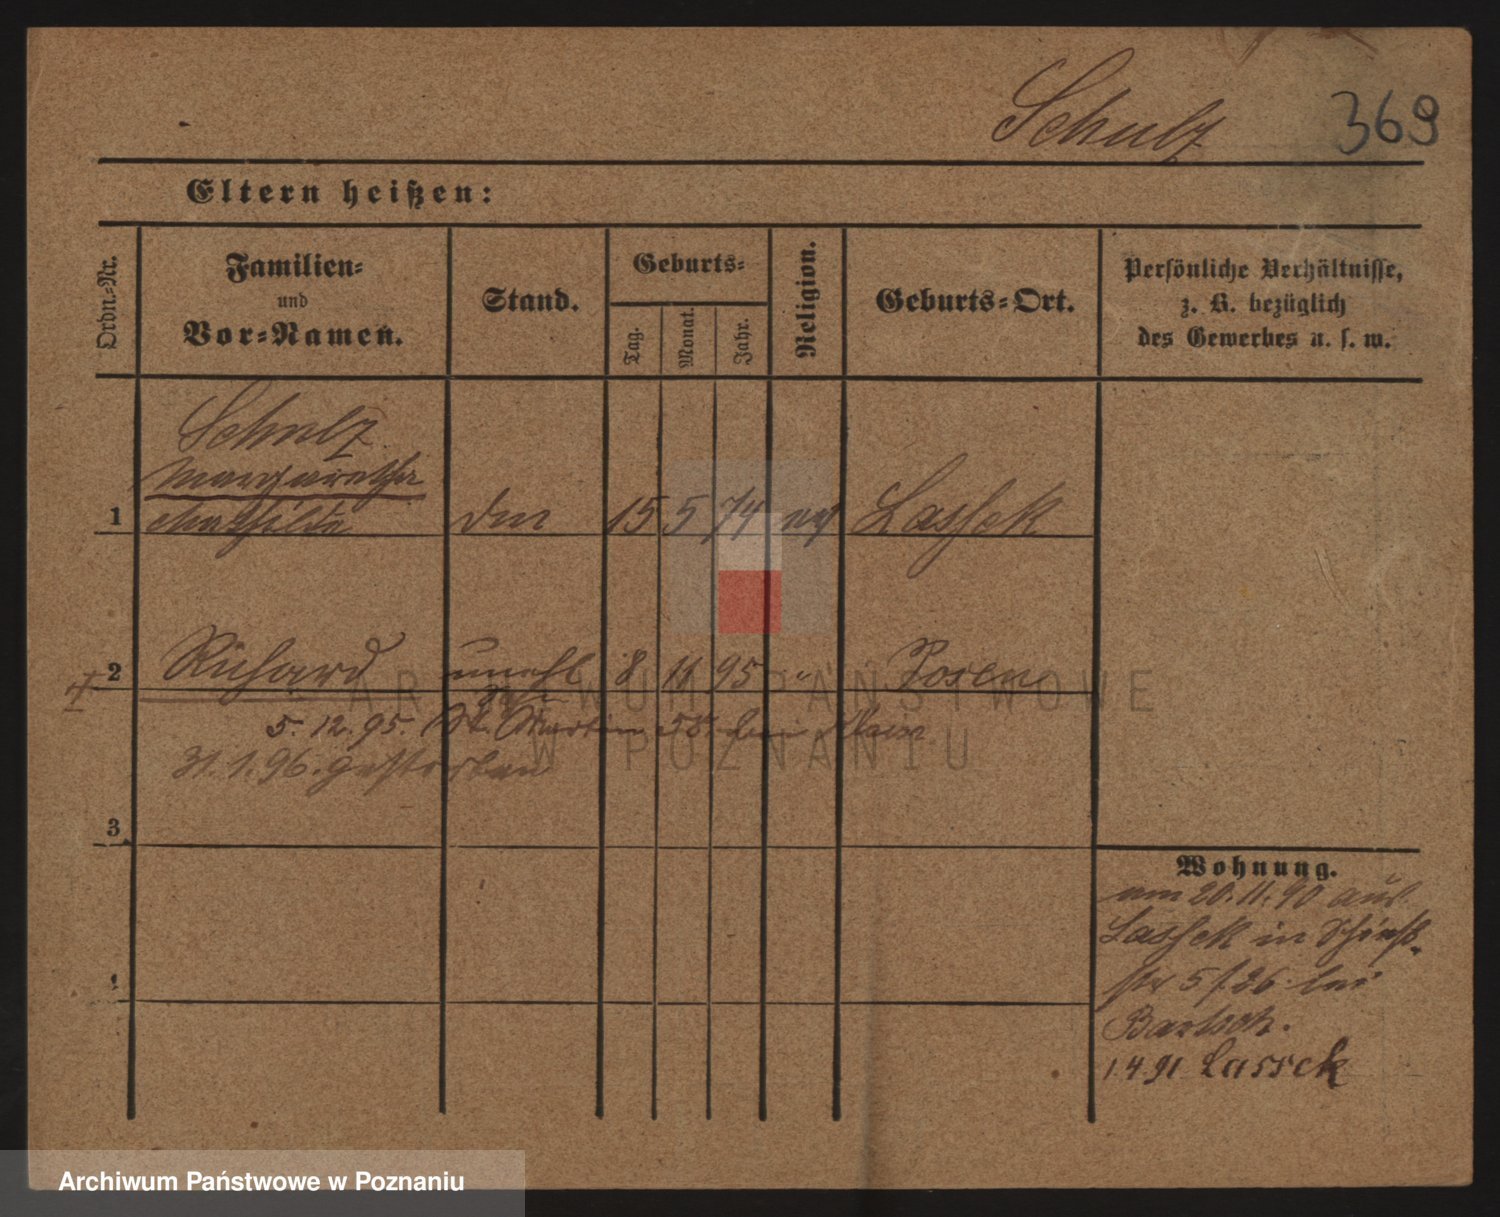 Schulz 369
Eltern heißen:
Ordn.-Nr.
Familien-
und
Vor-Namen.
Stand.
Geburts-
Tag.
Monat.
Jahr.
Religion.
Geburts-Ort.
Persönliche Verhältnisse,
z. B. bezüglich
des Gewerbes u. s. w.
Schulz
Margarethe
1 Mathilde 15 5 74 Lassek
2 Richard unehl 8 11 95 " Posen
Sohn
5. 12. 95. St. Martin 58 bei
31. 1. 96. gestorben
3
Wohnung.
am 20.11.90 aus
Lassek in
str 5 26 bei
Bartsch.
1 4 91 Lassek
ARCHIWUM PAŃSTWOWE
W POZNANIU
Archiwum Państwowe w Poznaniu